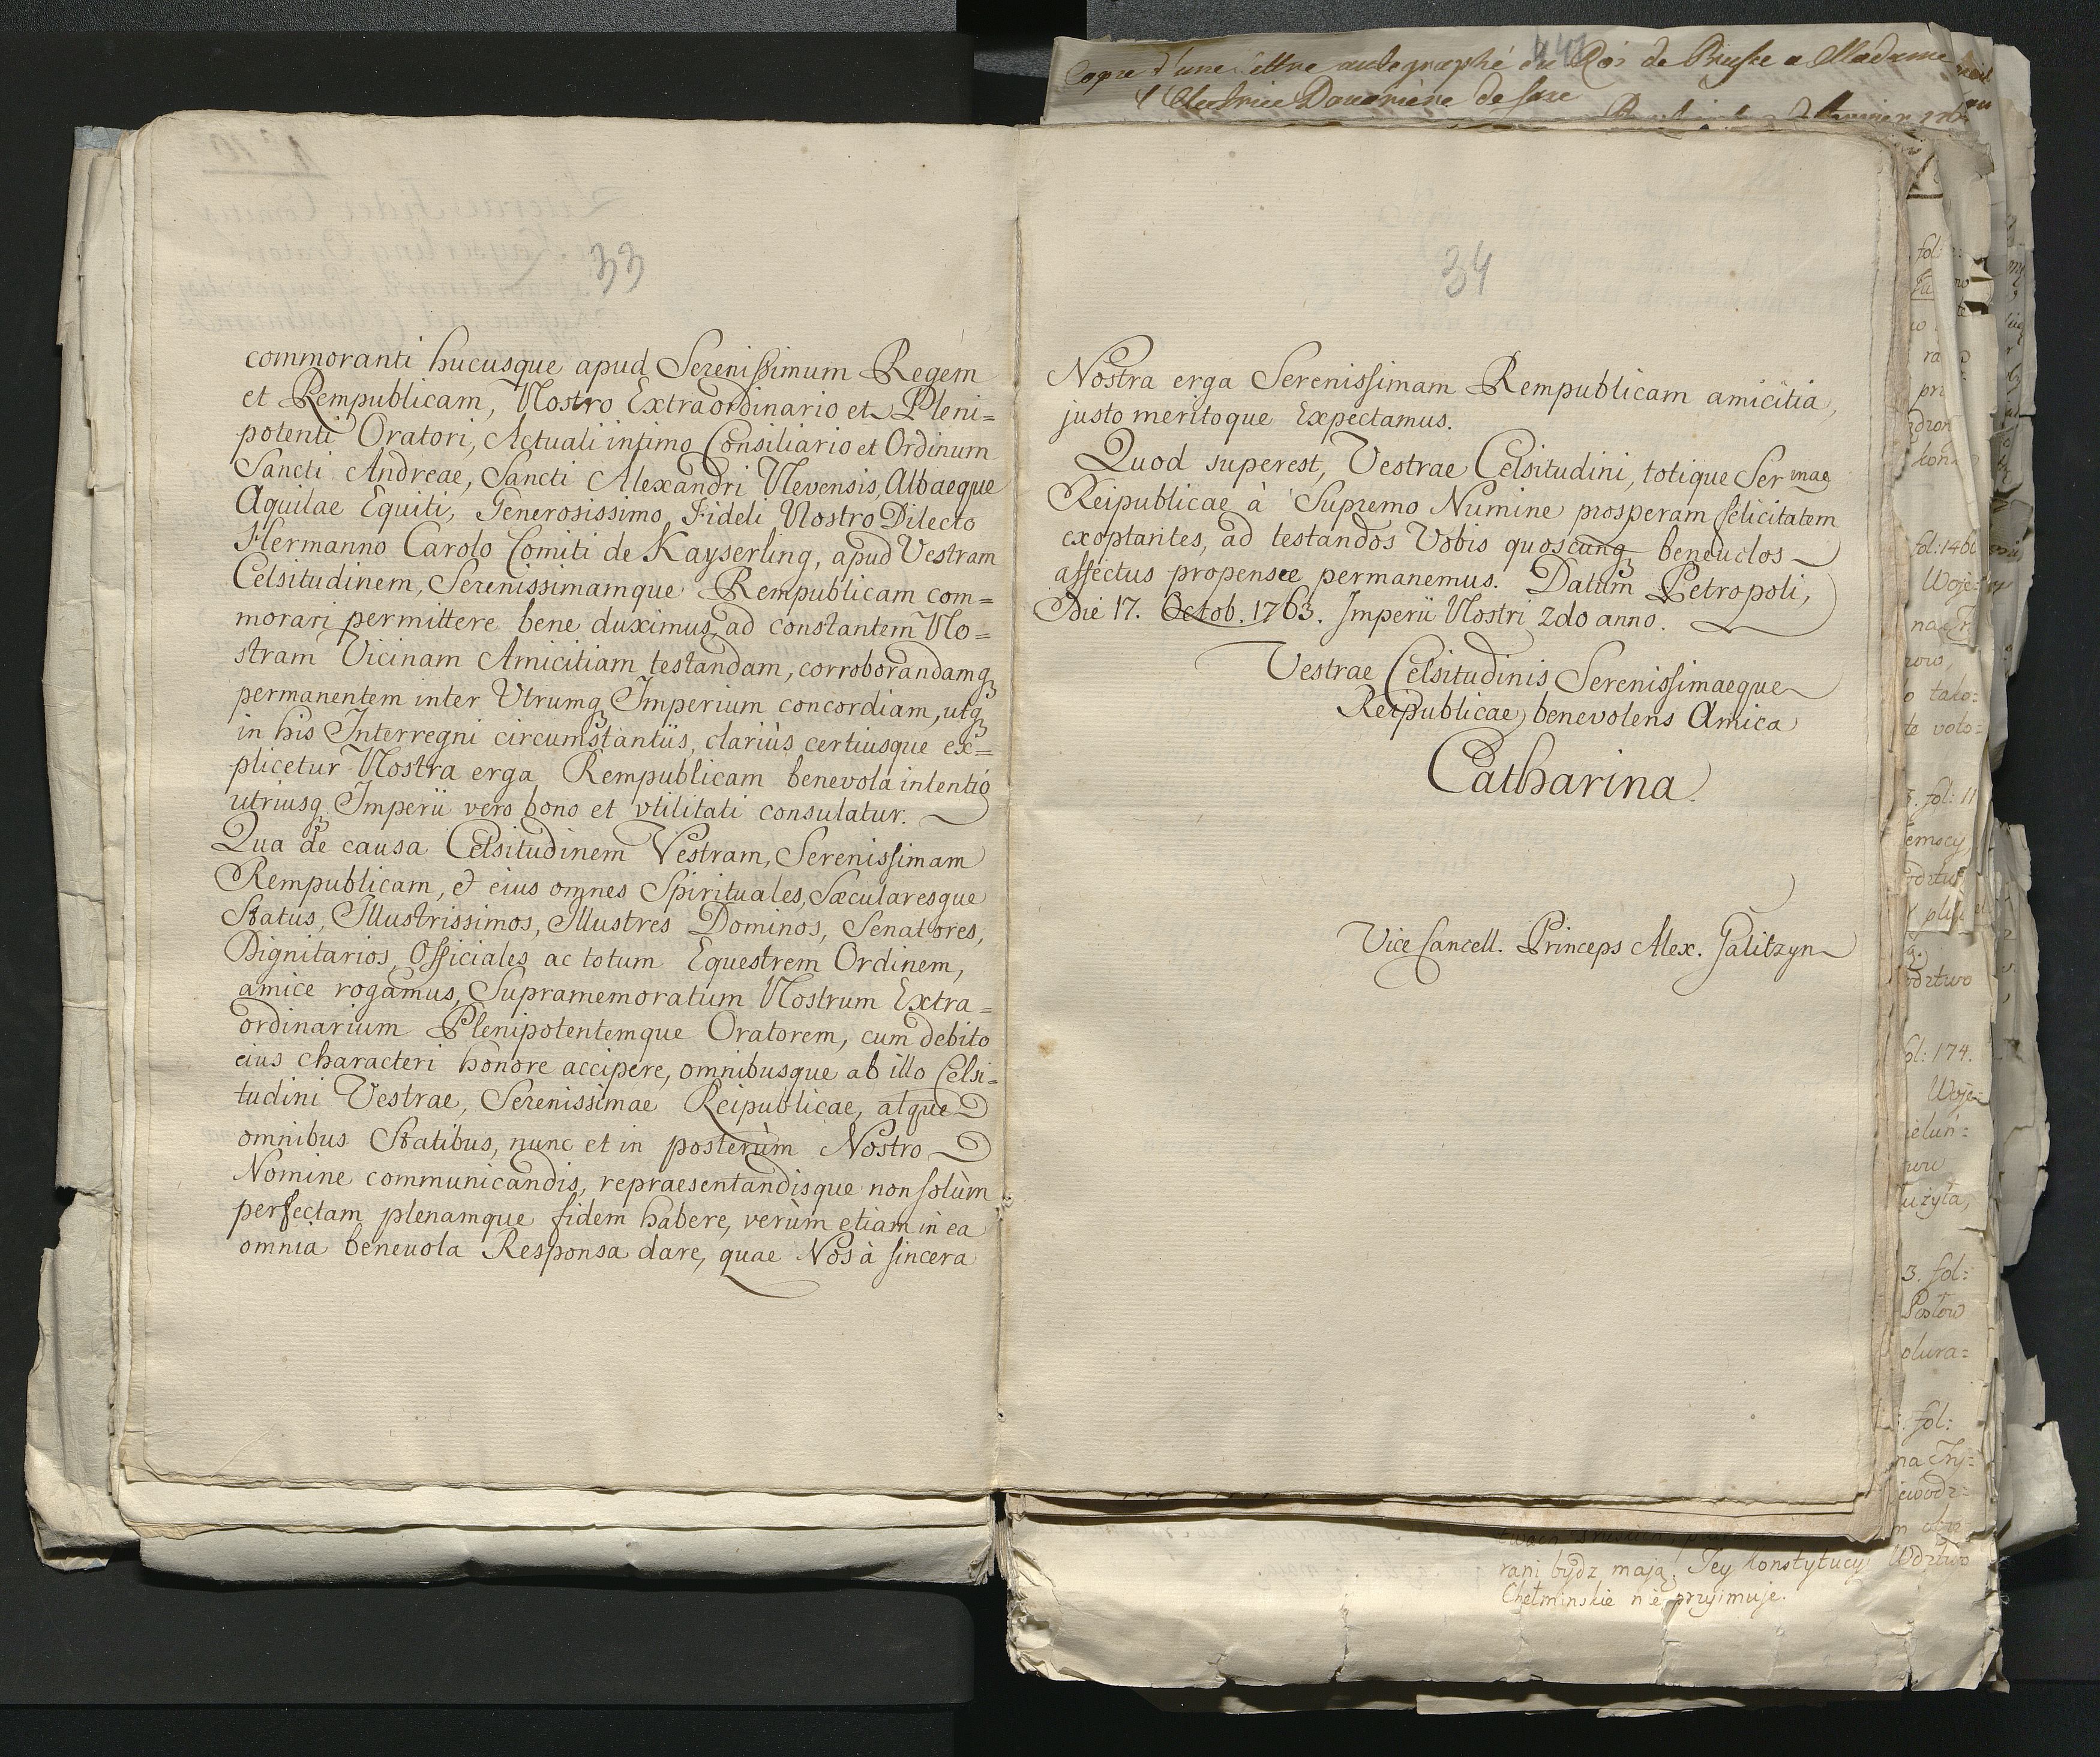 33
commoranti hucusque apud Serenissimum Regem
et Rempublicam, Nostro Extraordinario et Pleni=
potenti Oratori, Actuali intimo Consiliario et Ordinum
Sancti Andreae, Sancti Alexandri Nevensis, Albaeque
Aquilae Equiti, Generosissimo, Fideli Nostro Dilecto
Hermanno Carolo Comiti de Kayserling, apud Vestram
Celsitudinem, Serenissimamque Rempublicam com=
morari permittere bene duximus, ad constantem No=
stram Vicinam Amicitiam testandam, corroborandamqꝫ
permanentem inter Utrumqꝫ Imperium concordiam, utqꝫ
in his Interregni circumstantiis, clariùs certiusque ex=
plicetur Nostra erga Rempublicam benevola intentio
utriusqꝫ Imperii vero bono et vtilitati consulatur.
Qua de causa Celsitudinem Vestram, Serenissimam
Rempublicam, et eius omnes Spirituales, Sæcularesque
Status, Illustrissimos, Illustres Dominos, Senatores,
Dignitarios, Officiales ac totum Equestrem Ordinem,
amice rogamus, Supramemoratum Nostrum Extra=
ordinarium Plenipotentemque Oratorem, cum debito
eius characteri honore accipere, omnibusque ab illo Celsi=
tudini Vestrae, Serenissimae Reipublicae, atque
omnibus Statibus, nunc et in posterùm Nostro
Nomine communicandis, repraesentandisque non solùm
perfectam plenamque fidem habere, verùm etiam in ea
omnia beneuola Responsa dare, quae Nos à sincera
34
Nostra erga Serenissimam Rempublicam amicitia,
justo meritoque Expectamus.
Quod superest, Vestrae Celsitudini, totique Sermae
Reipublicae à Supremo Numine prosperam felicitatem
exoptantes, ad testandos Vobis quoscunqꝫ beneuolos
affectus propensae permanemus. Datum Petropoli,
Die 17. Octob. 1763. Imperii Nostri 2do anno.
Vestrae Celsitudinis Serenissimaeque
Reipublicae, benevolens Amica
Catharina.
Vice Cancell. Princeps Alex. Galitzyn
Copie d'une lettre autographé du Roi de Prusse a Madame
l'Electrice Douariere de Saxe
rani bydz mają. Tey konstytucyi Wdztwo
Chełminskie nie przyimuje.
fol: 146
Woje=
row,
o tako=
te voto=
fol: 11
wdztwo
fol: 174.
Woje=
użyta,
3. fol:
Posłow
fol: